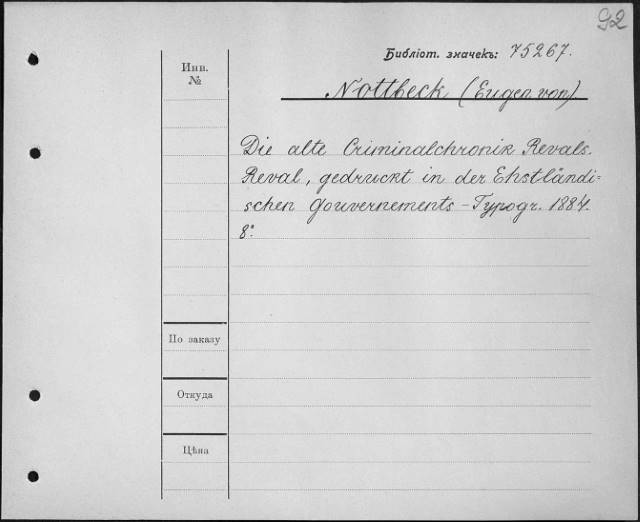 92
Библіот. значекъ: 75267.
Инв.
№
Nottbeck (Eugen von)
Die alte Criminalchronik Revals.
Reval, gedruckt in der Ehstländi=
schen Gouvernements-Typogr. 1884.
8°.
По заказу
Откуда
Цѣна